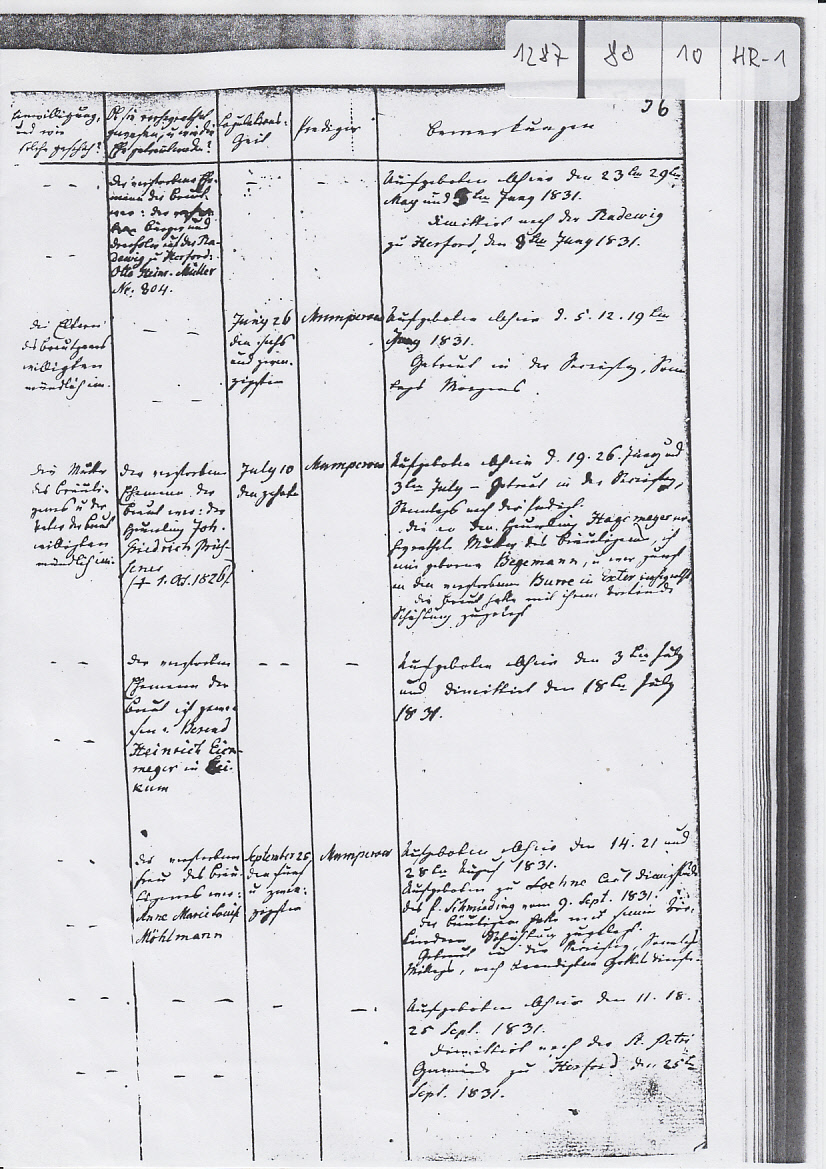 1287 80 10 HR-1
36
Einwilligung,
und wie
solche geschah?
Ob sie rechtgrathet
gewesen, u. wie die
Ehe getrennt worden?
Copulations-
Zeit
Prediger
Bemerkungen
der verstorbene Ehe
mann der Braut
war: der
Bürger und
Drechsler auf der Ra-
dewig zu Herford:
Otto Heinr. Müller
No. 804.
Aufgeboten allhier den 23ten 29ten
May und 5ten Juny 1831.
Dimittirt nach der Radewig
zu Herford, den 8ten Juny 1831.
die Eltern
des Bräutigams
willigten
mündlich ein.
Juny 26
den sechs
und zwan-
zigsten
Mumperow
Aufgeboten allhier d. 5. 12. 19ten
Juny 1831.
Getraut in der Sacristey, Sonn
tags Morgens.
die Mutter
des Bräuti-
gams u. der
Vater der Braut
willigten
mündlich ein.
der verstorbene
Ehemann der
Braut war: der
Heuerling Joh.
Friedrich
(+ 1. Oct. 1826)
July 10
den zehnten
Mumperow
Aufgeboten allhier d. 19. 26. Juny und
3ten July – Getraut in der Sacristey,
Sonntags nach der Predigt.
die an den Heuerling Hagemeyer
Mutter des Bräutigams, ist
eine geborne Begemann, u. war zuerst
an den verstorbenen Burre in Exter
die Braut hatte mit ihren
Schichtung zugelegt
der verstorbene
Ehemann der
Braut ist gewe-
sen: Berend
Heinrich Eick-
meyer in
kum
Aufgeboten allhier den 3ten July
und dimittirt den 18ten July
1831.
die verstorbene
Frau des Bräu-
tigams war:
Anne Marie Louise
Möhlmann
September 25,
den fünf
u. zwan-
zigsten
Mumperow
Aufgeboten allhier den 14. 21 und
28ten August 1831.
Aufgeboten zu Loehne
des P. Schmieding vom 9. Sept. 1831.
der Bräutigam hatte mit seinen Vor-
kindern Schichtung zugelegt.
Getraut in der Sacristey, Sonntags
Mittags, nach beendigtem Gottesdienste.
Aufgeboten allhier den 11. 18.
25 Sept. 1831.
Dimittirt nach der St. Petri
Gemeinde zu Herford den 25ten
Sept. 1831.